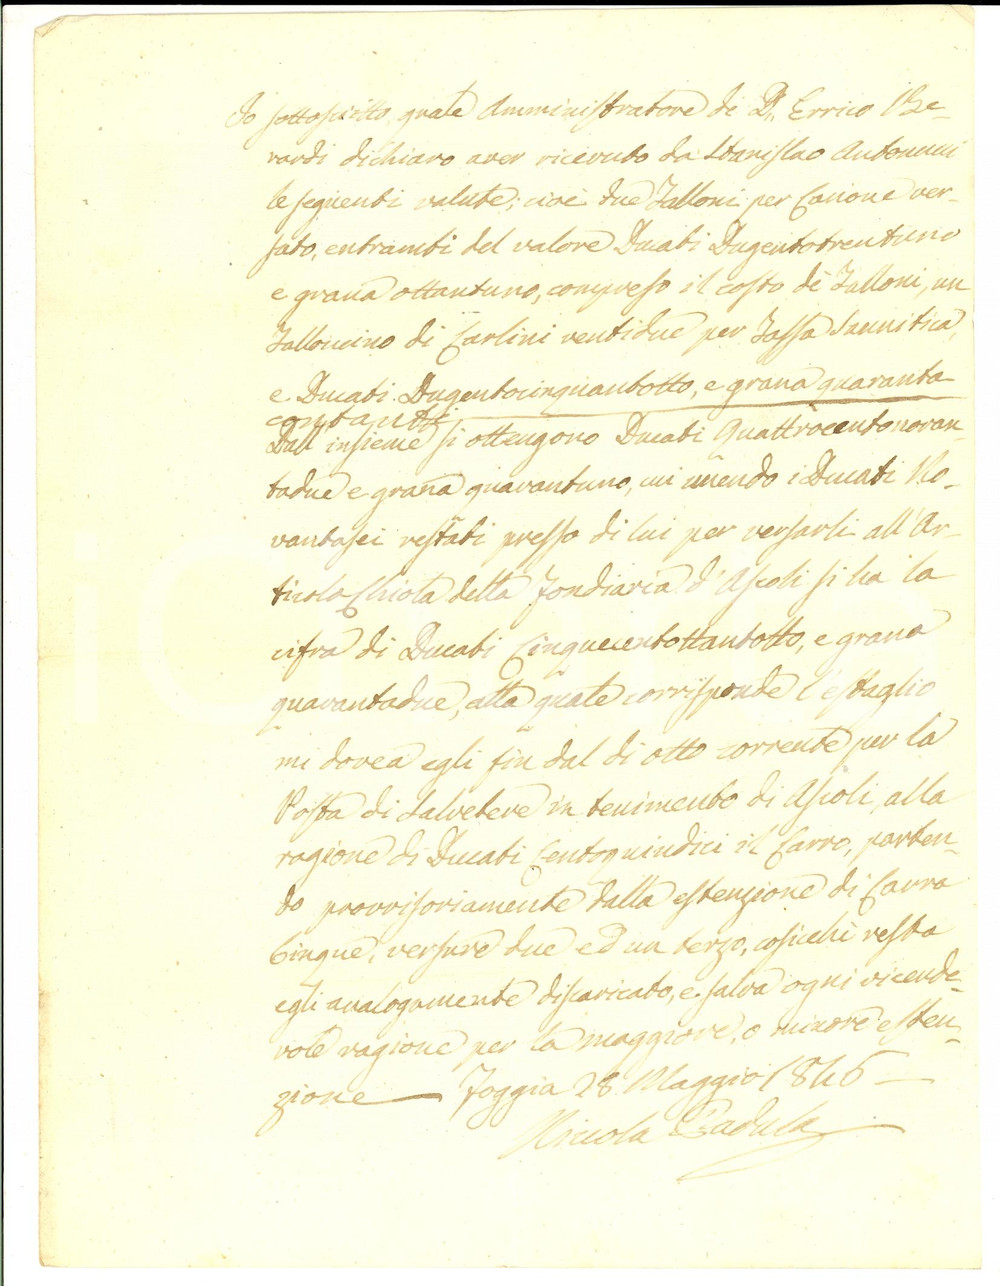 Io sottoscritto, quale Amministratore di D. Errico Be-
rardi dichiaro aver ricevuto da Stanislao Antonini
le seguenti valute; cioè due Talloni per Canone ver-
sato, entrambi del valore Ducati Dugentotrentuno
e grana ottantuno, compreso il costo de' Talloni, un
Talloncino di Carlini ventidue per Tassa Sannitica,
e Ducati Dugentocinquantotto, e grana quaranta
contanti.
Dall'insieme si ottengono Ducati Quattrocentonovan-
tadue e grana quarantuno, cui unendo i Ducati No-
vantasei restati presso di lui per versarli all'Ar-
ticolo Chiota della Fondiaria d'Ascoli si ha la
cifra di Ducati Cinquecentottantotto, e grana
quarantadue, alla quale corrisponde l'estaglio
mi dovea egli fin dal dì otto corrente per la
Posta di Salvetere in tenimento di Ascoli, alla
ragione di Ducati Centoquindici il Carro, parten-
do provvisoriamente dalla estenzione di Carra
Cinque, versure due ed un terzo, cosicchè resta
egli analogamente discaricato, e salva ogni vicende-
vole ragione per la maggiore, o minore esten-
zione — Foggia 28 Maggio 1846 —
Niccola Padula